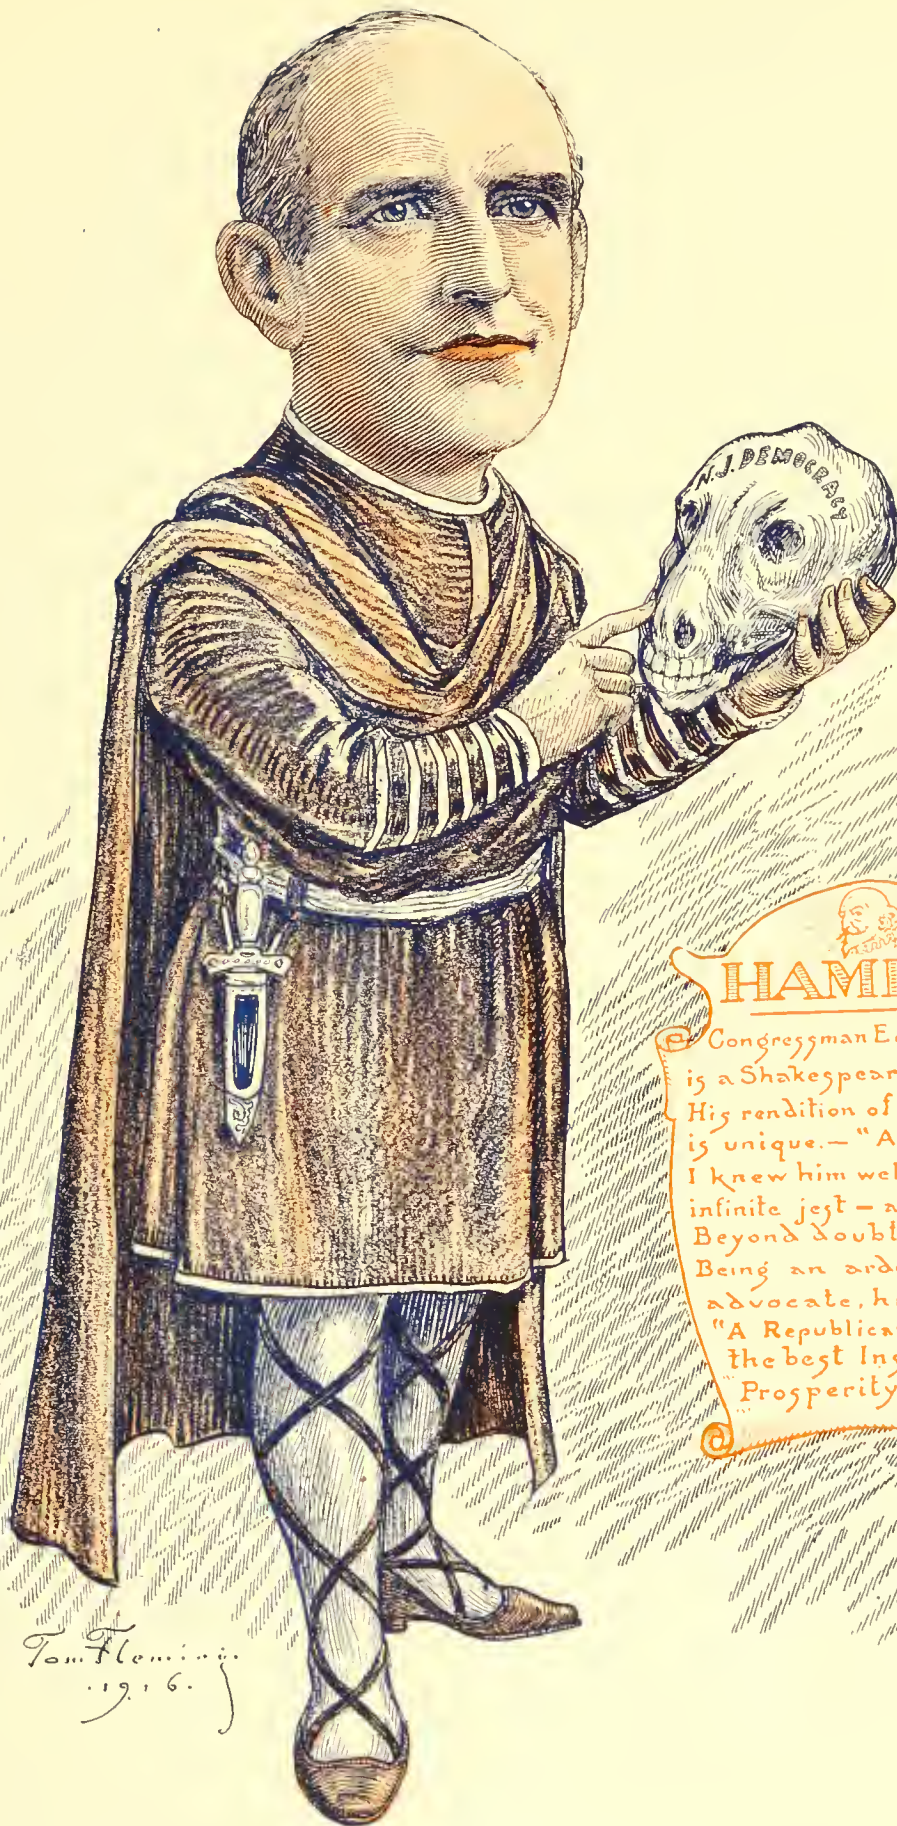 N.J. DEMOCRACY
HAM
Congressman E
is a Shakespear
His rendition of
is unique. — "A
I knew him wel
infinite jest — a
Beyond doubt
Being an ard
advocate, h
"A Republica
the best In
Prosperity
Tom Fleming.
.1916.